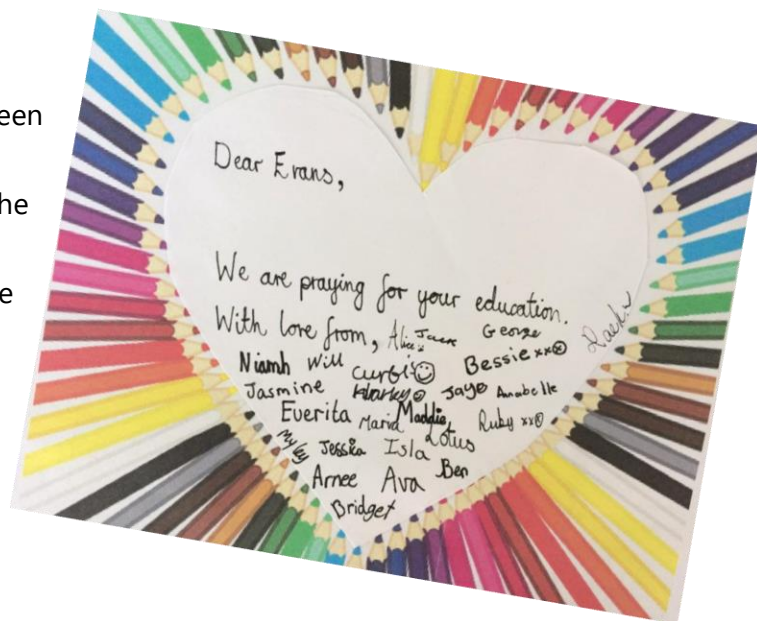 een
he
e
Dear Evans,
We are praying for your education.
With love from, Alice Jack George
Niamh Will Curtis Bessie xx
Jasmine Harley Jaye Annabelle
Everita Maria Maddie Ruby xx
Myley Jessica Isla Lotus
Arnee Ava Ben
Bridget